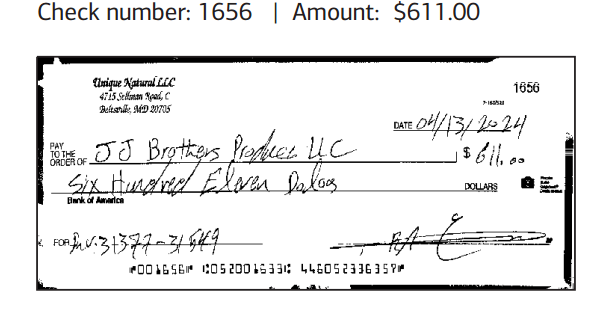 Check number: 1656 | Amount: $611.00
Unique Natural LLC
4715 Sellman Road, C
Beltsville, MD 20705
1656
DATE 04/13/2024
PAY TO THE ORDER OF JJ Brothers Produce LLC $ 611.00
Six Hundred Eleven Dolars DOLLARS
Bank of America
FOR Inv:31377-31549
⑈001656⑈ ⑆052001633⑆ 446052336357⑈